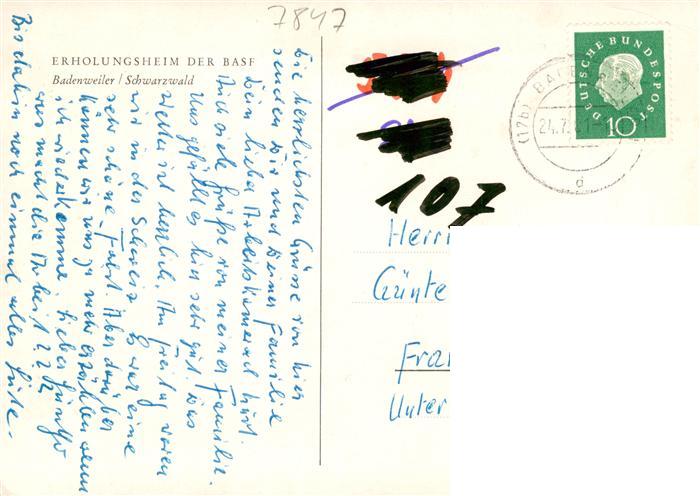 7847
ERHOLUNGSHEIM DER BASF
Badenweiler / Schwarzwald
Die herrlichsten Grüsse von hier
senden wir und Deiner Familie
Dein lieber Arbeitskamerad Kurt.
Auch viele Grüße von meiner Familie.
Uns gefällt es hier sehr gut. Das
Wetter ist herrlich. Am Freitag waren
wir in der Schweiz. Es war eine
sehr schöne Fahrt. Aber darüber
können wir uns ja mehr erzählen wenn
ich wiederkomme. Lieber Günther
was macht die Arbeit??
Bis dahin noch einmal alles Gute.
DEUTSCHE BUNDESPOST
10
(17b) BADE
24.7.
d
107
Herrn
Günte
Fra
Unter